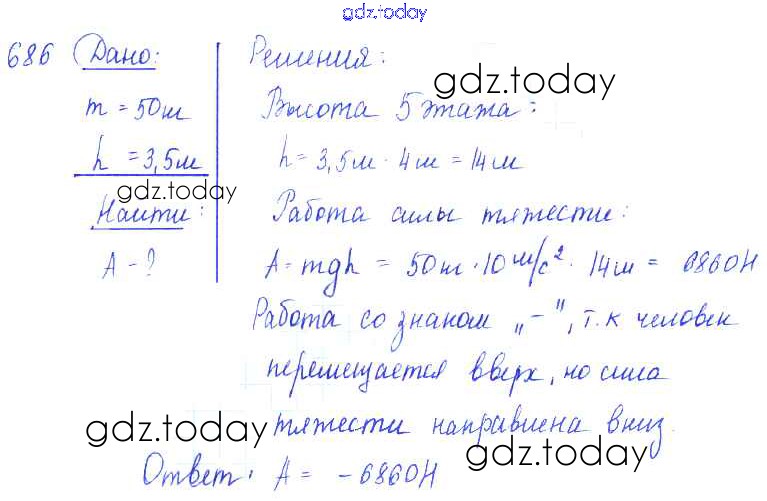 gdz.today
686 Дано: Решения:
gdz.today
m = 50кг Высота 5 этажа:
h = 3,5м h = 3,5м · 4м = 14м
gdz.today
Найти: Работа силы тяжести:
A - ? A = mgh = 50кг · 10 м/с² · 14м = 6860Н
Работа со знаком „-", т.к человек
перемещается вверх, но сила
gdz.today тяжести направлена вниз.
gdz.today
Ответ: A = -6860Н